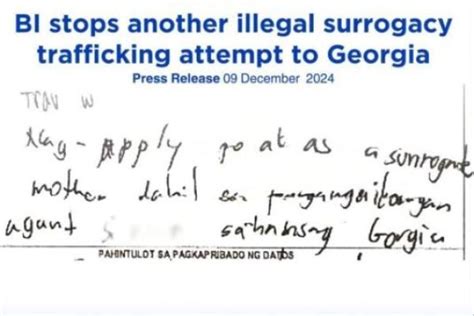 BI stops another illegal surrogacy
trafficking attempt to Georgia
Press Release 09 December 2024
Trav w
Nag-Apply po at as a surrogate
mother dahil sa pangangailangan
agent sa bansang Gorgia
PAHINTULOT SA PAGKAPRIBADO NG DATOS